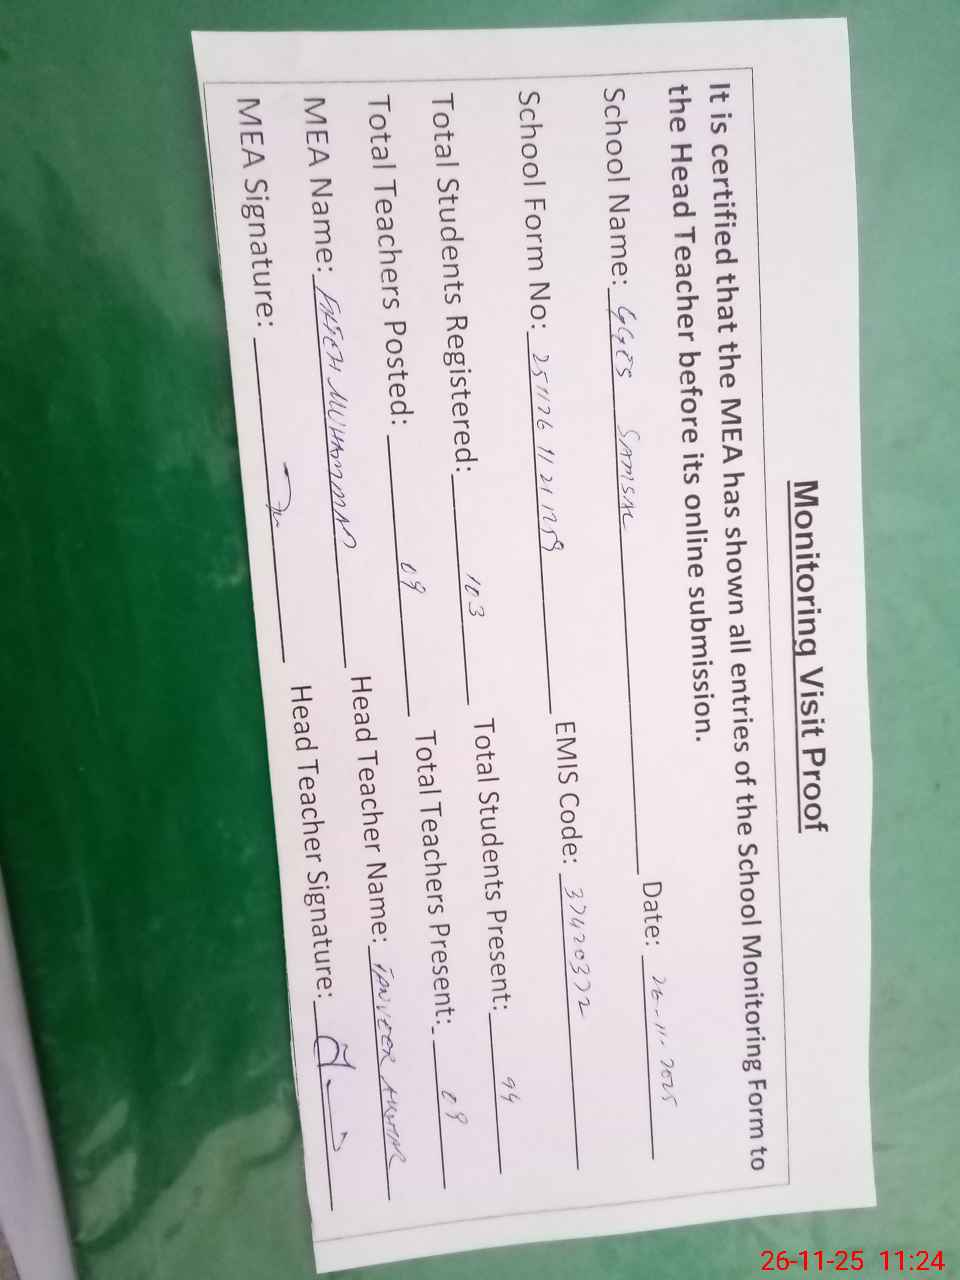 Monitoring Visit Proof
It is certified that the MEA has shown all entries of the School Monitoring Form to
the Head Teacher before its online submission.
School Name: GGES SAMSAL Date: 26-11-2025
School Form No: EMIS Code: 37420372
Total Students Registered: 103 Total Students Present: 94
Total Teachers Posted: 09 Total Teachers Present: 09
MEA Name: FATEH MUHAMMAD Head Teacher Name: TANVEER AKHTAR
MEA Signature: Head Teacher Signature:
26-11-25 11:24